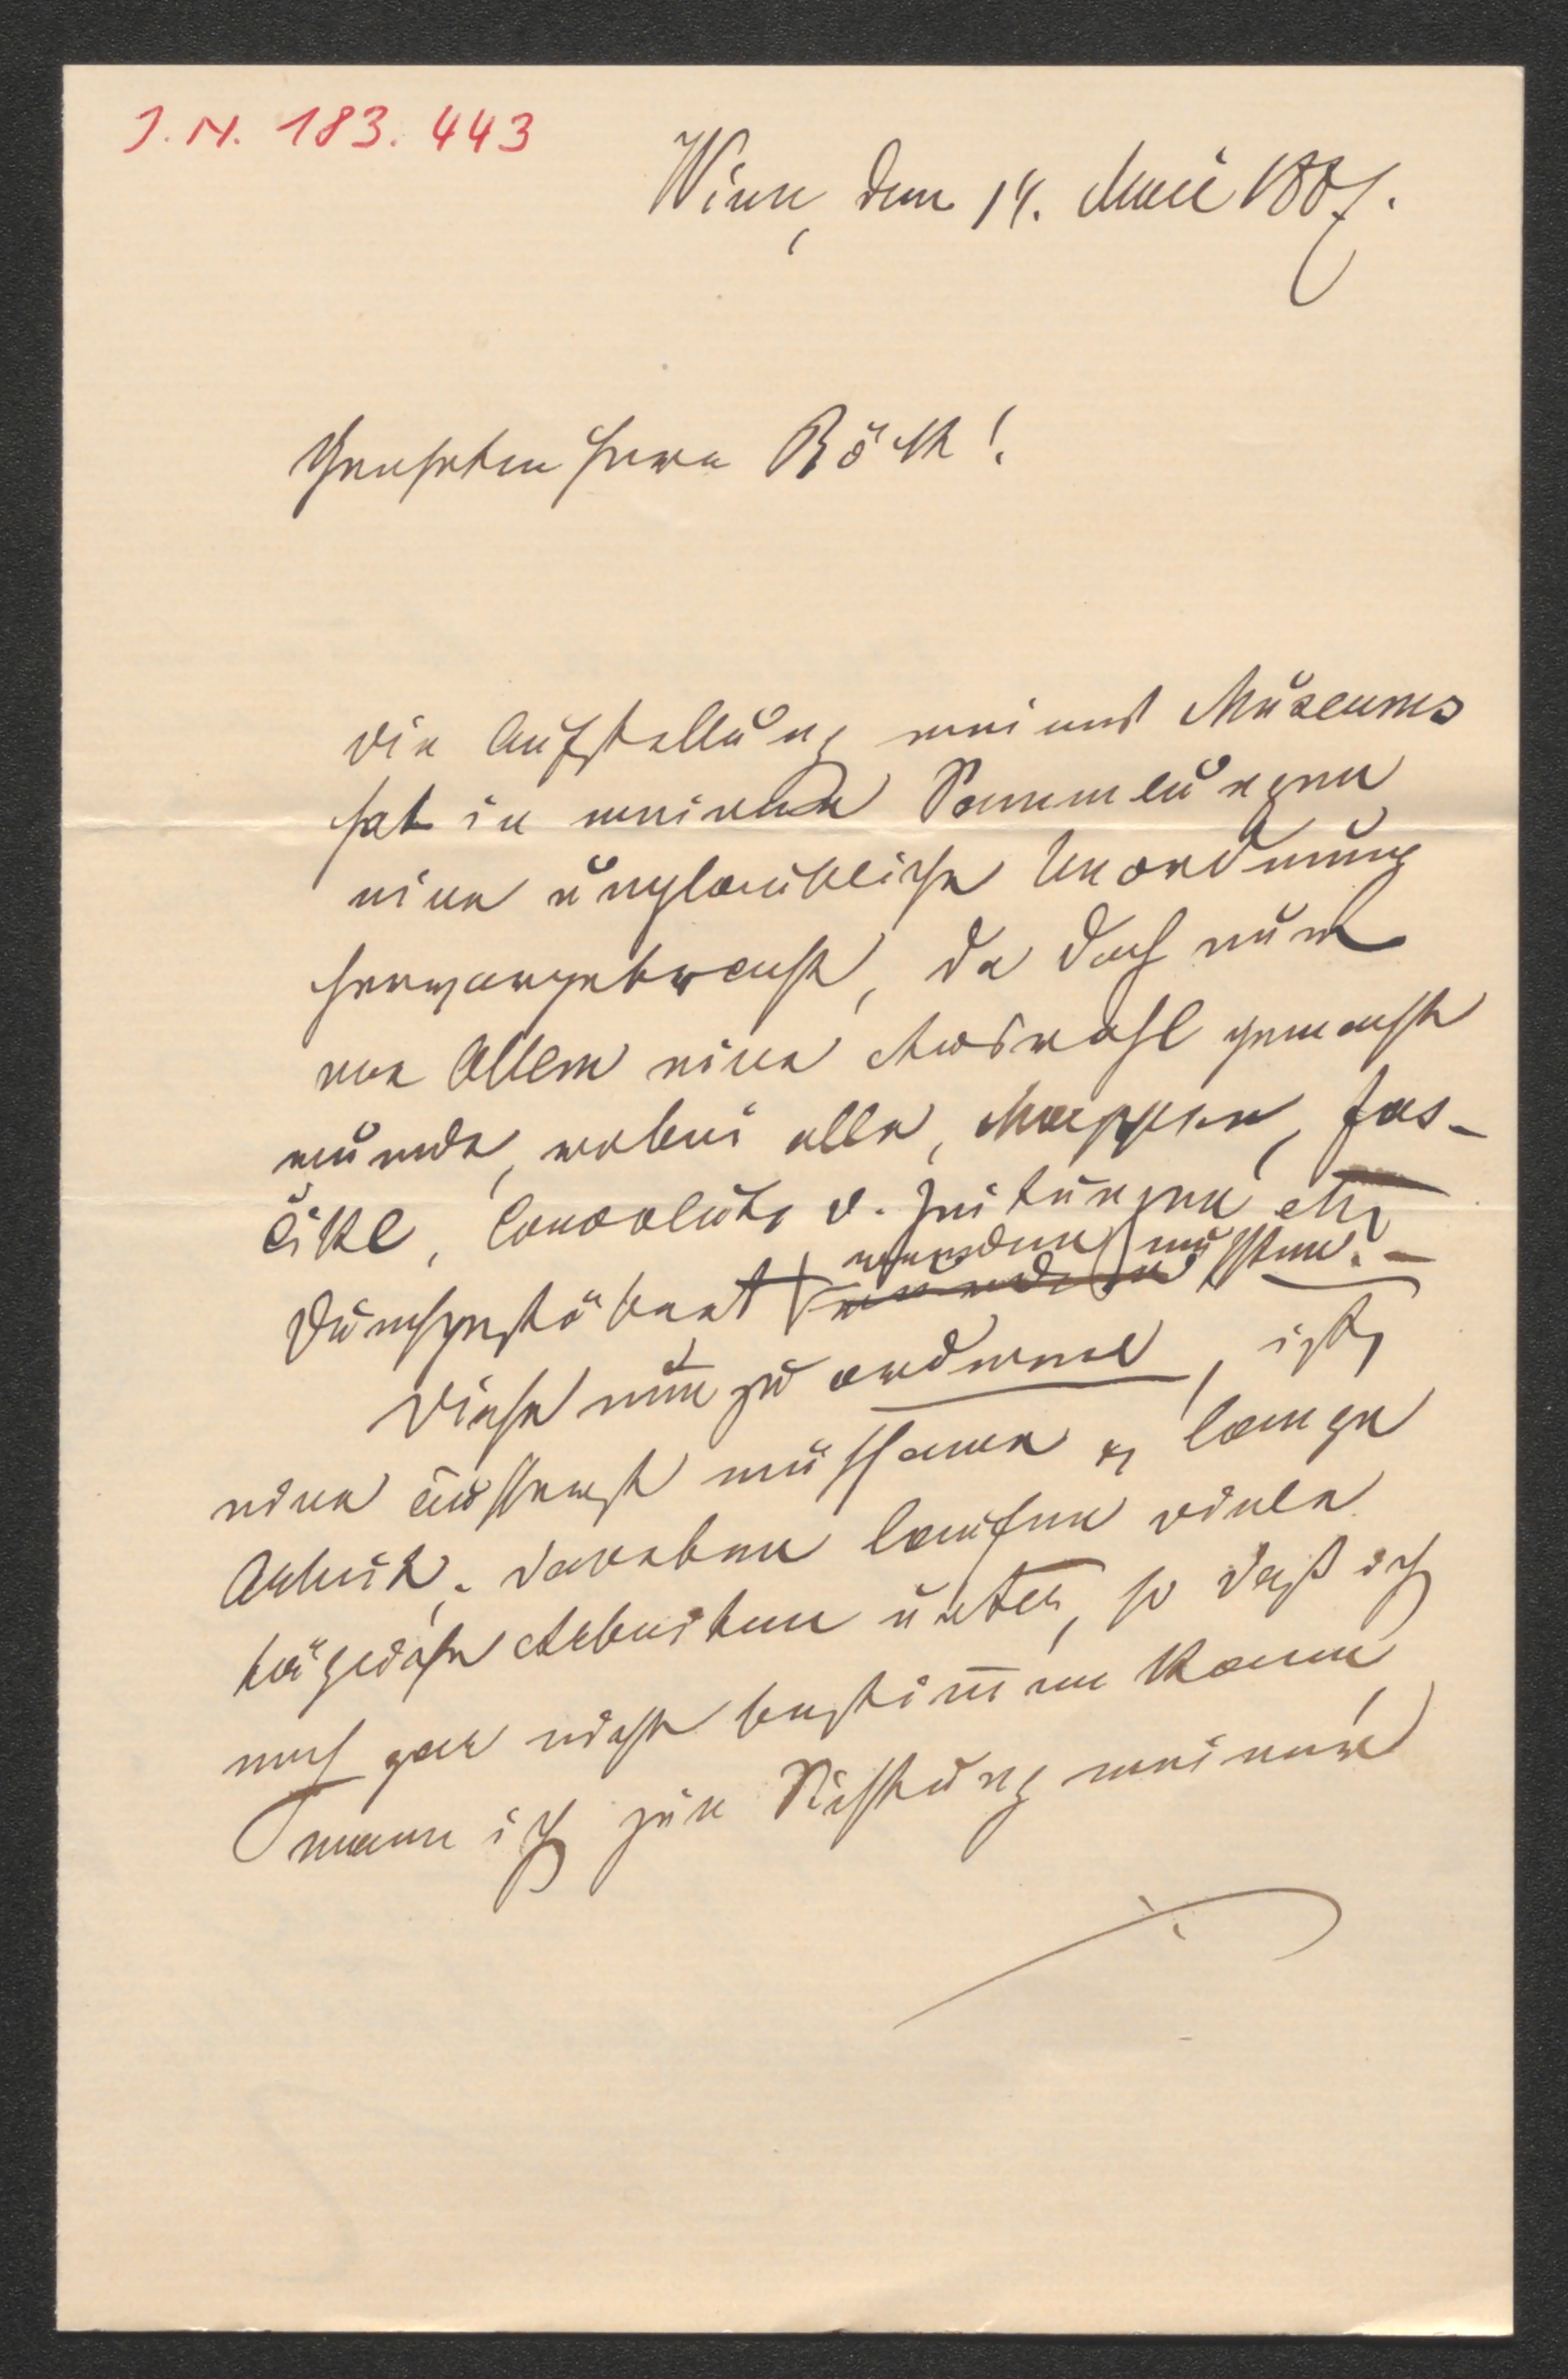 J. N. 183. 443
Wien, den 14. Mai 1887.
Geehrter Herr Böck!
die Aufstellung meines Museums
hat in meinen Sammlungen
eine unglaubliche Unordnung
hervorgebracht, da doch nur
vor Allem eine Auswahl gemacht
wurde, wobei alle, Mappen, Fas-
cikel, Convolute v. Zeitungen etc
werden mußten. –
durchgestöbert
Diese nun zu ordnen, ist
eine äusserst mühsame & lange
Arbeit. daneben laufen viele
tägliche Arbeiten unter, so daß ich
noch gar nicht bestimmen kann
wann ich zur Sichtung meiner